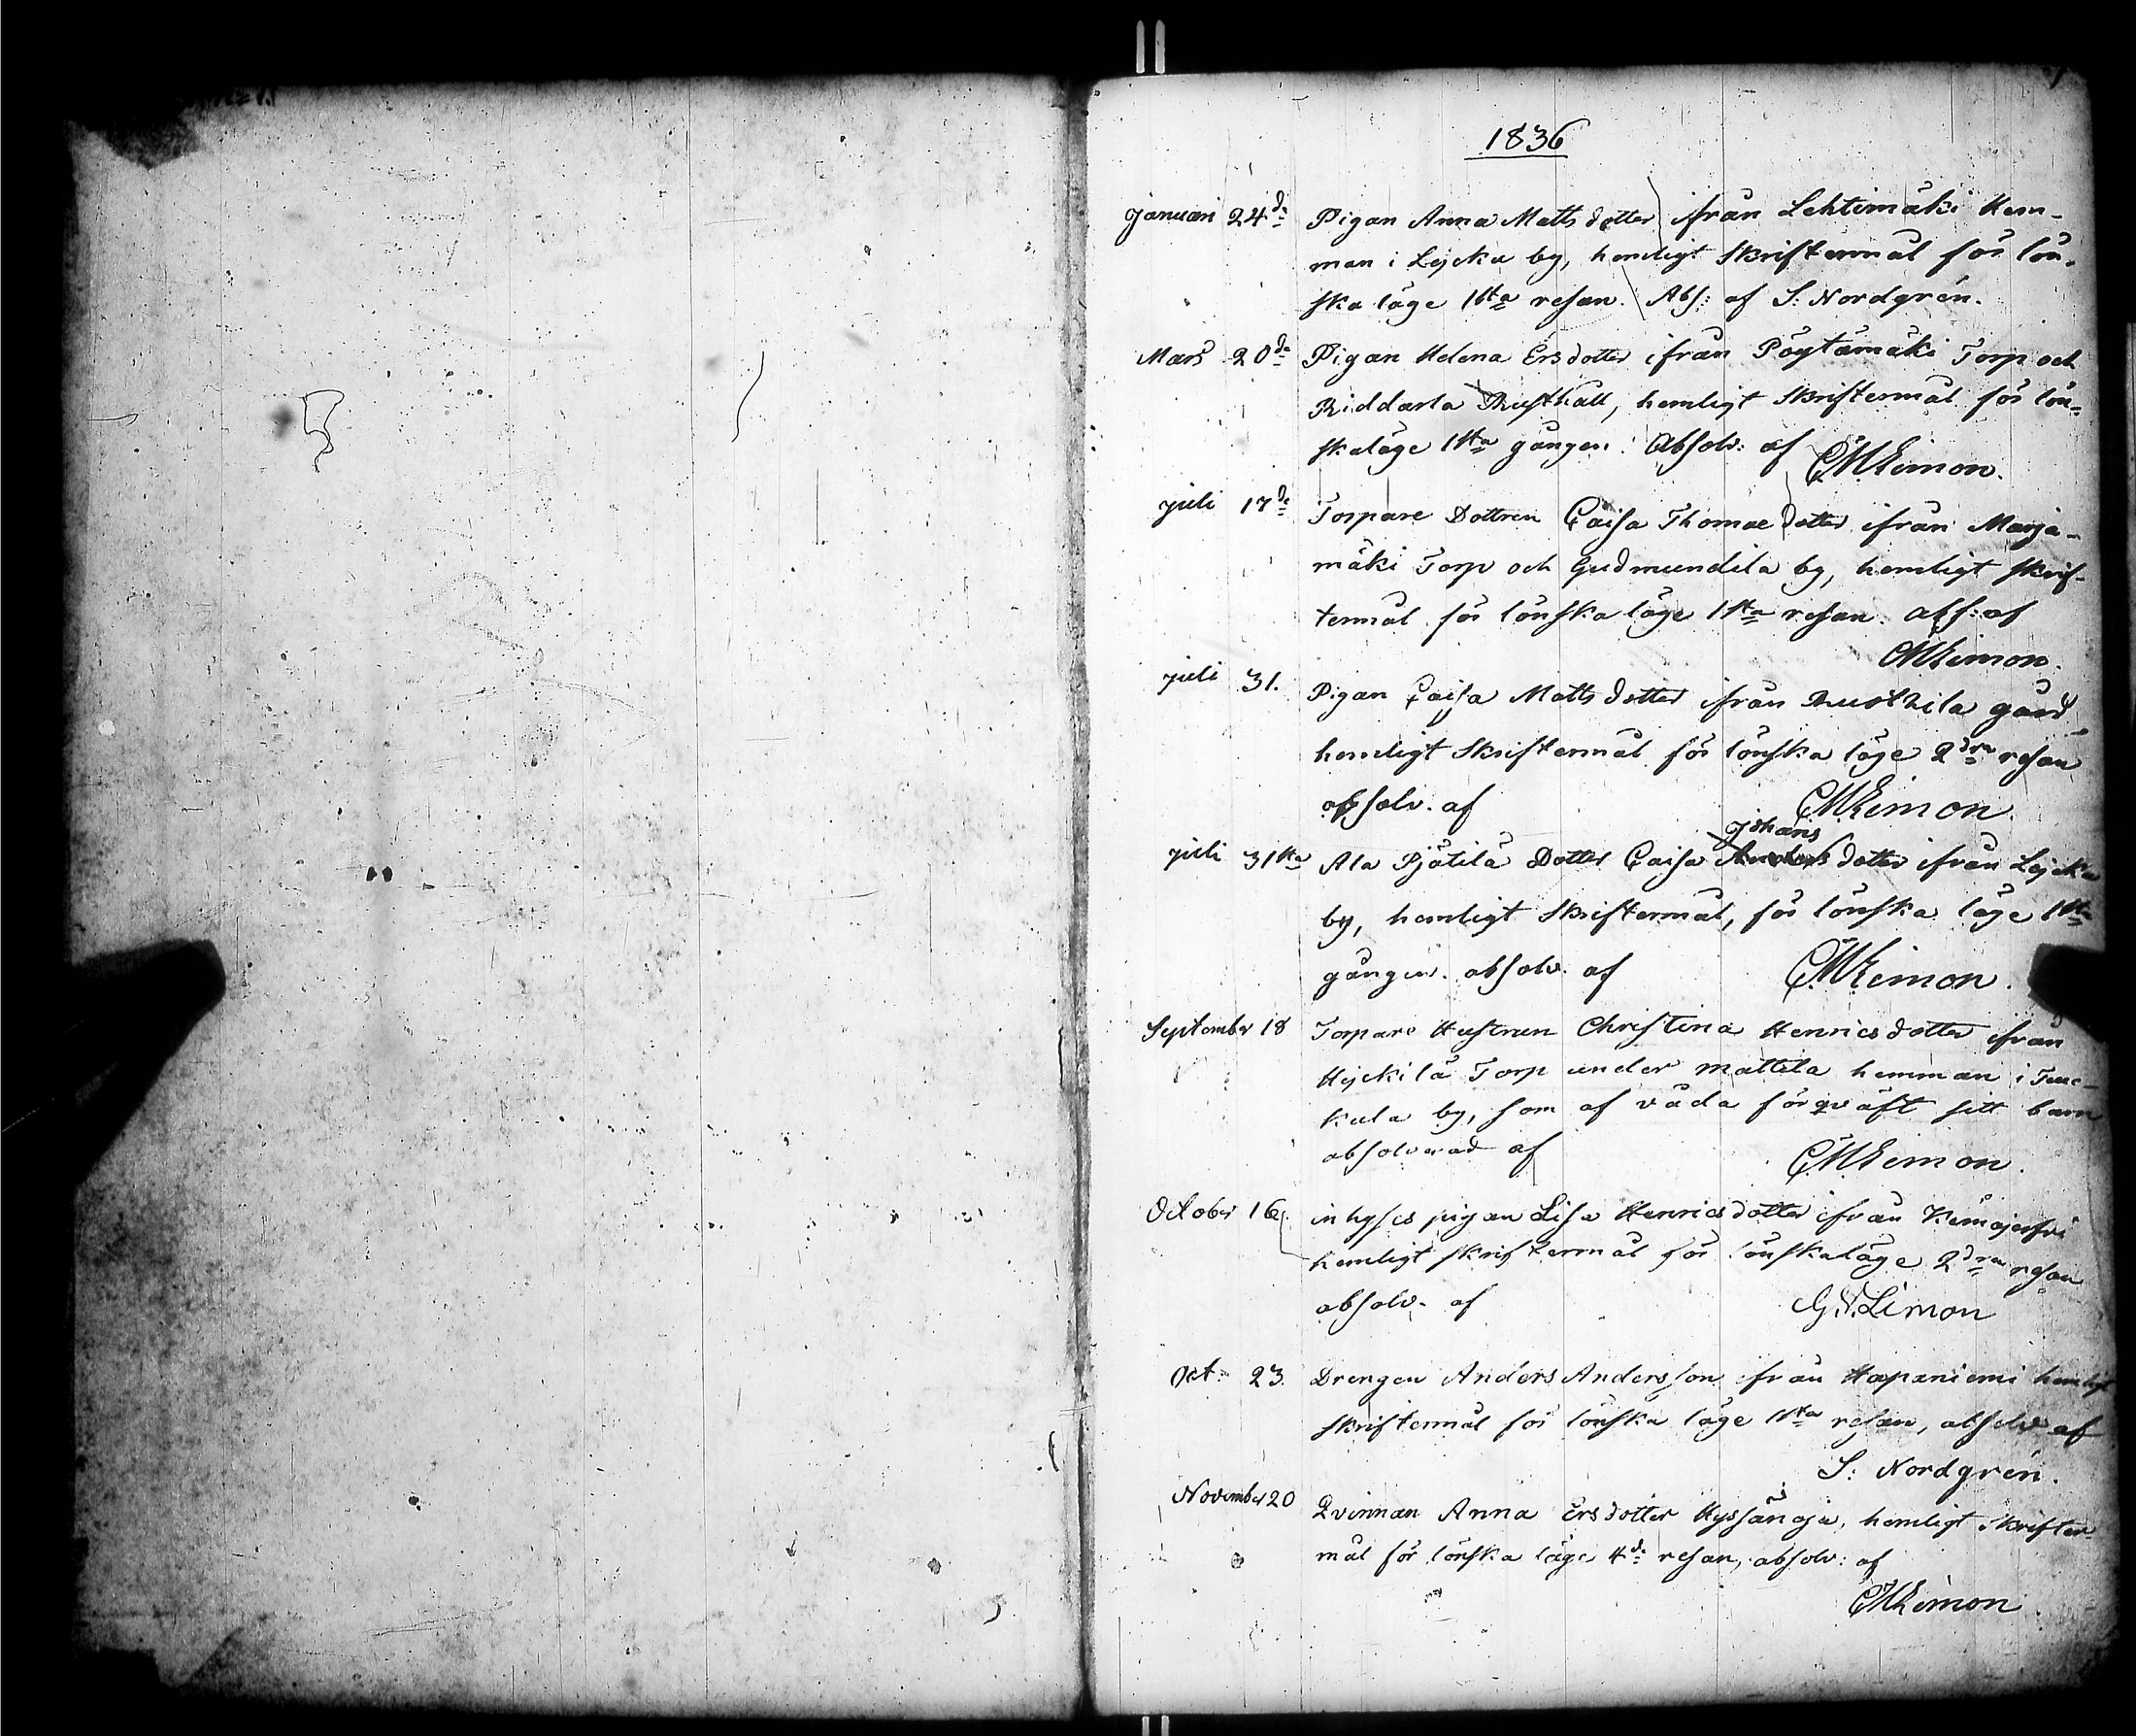 1836
Januari 24de Pigan Anna Matts dotter ifrån Lehtimäki Hem-
man i Lejcku by, hemligt Skriftermål för lön-
ska läge 1sta resan. Abs: af S: Nordgrén.
Mars 20de Pigan Helena Ersdotter ifrån Pöytämäki Torp och
Riddarla Rusthåll, hemligt Skriftermål för lön-
skaläge 1sta gången. Absolv: af CM Limon.
Juli 17de Torpare Dottren Caisa Thomae dotter ifrån Marja-
mäki Torp och Gudmundila by, hemligt skrif-
termål för lönska läge 1sta resan. abs: af
CM Limon.
Juli 31. Pigan Caisa Matts dotter ifrån Rusthila gård
hemligt Skriftermål för lönska läge 2dra resan
absolv. af CM Limon.
Johans
Juli 31sta Ala Pjätilä Dotter Caisa Anders dotter ifrån Lejcku
by, hemligt Skriftermål, för lönska läge 1sta
gången. absolv. af CM Limon.
September 18 Torpare Hustrun Christina Henricsdotter ifrån
Hejckilä Torp under Mattila hemman i
kula by, som af våda förqväft sitt barn
absolverad af CM Limon.
October 16. inhyses pigan Lisa Henricsdotter ifrån
hemligt skriftermål för lönskaläge 2dra resan
absolv. af Limon
Oct: 23. Drengen Anders Andersson ifrån Hapaniemi hemligt
Skriftermål för lönska läge 1sta resan, absolv af
S: Nordgrén.
November 20 Qvinnan Anna Ersdotter Hyssänoja, hemligt skrifter-
mål för lönska läge 4de resan, absolv: af
CM Limon